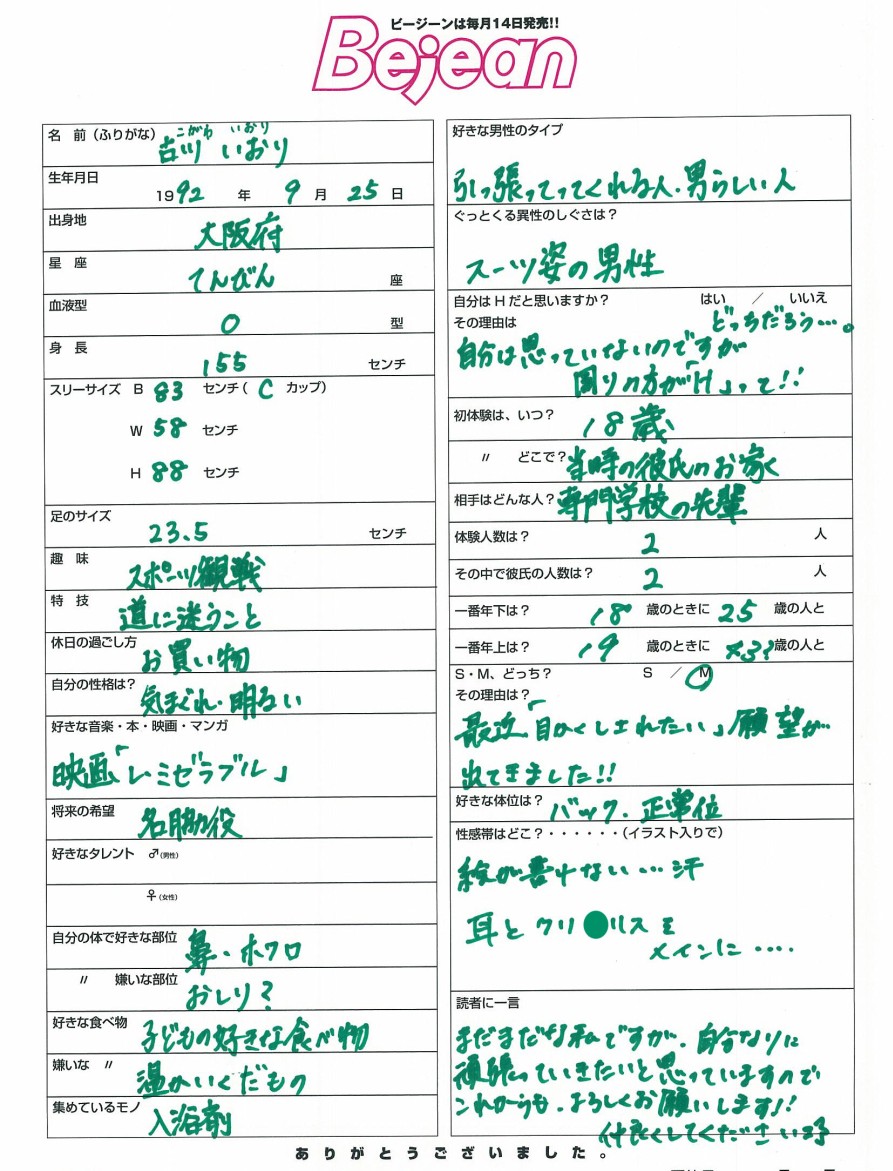 ビージーンは毎月14日発売!!
Bejean
名 前（ふりがな） こがわ いおり
古川 いおり
生年月日
1992 年 9 月 25 日
出身地
大阪府
星 座
てんびん 座
血液型
O 型
身 長
155 センチ
スリーサイズ B 83 センチ（ C カップ）
W 58 センチ
H 88 センチ
足のサイズ
23.5 センチ
趣 味
スポーツ観戦
特 技
道に迷うこと
休日の過ごし方
お買い物
自分の性格は?
気まぐれ・明るい
好きな音楽・本・映画・マンガ
映画「レ・ミゼラブル」
将来の希望
名脇役
好きなタレント ♂（男性）
♀（女性）
自分の体で好きな部位
鼻・ホクロ
〃 嫌いな部位
おしり?
好きな食べ物
子どもの好きな食べ物
嫌いな 〃
温かいくだもの
集めているモノ
入浴剤
好きな男性のタイプ
引っ張ってってくれる人・男らしい人
ぐっとくる異性のしぐさは?
スーツ姿の男性
自分はHだと思いますか? はい ／ いいえ
その理由は どっちだろう…。
自分は思っていないのですが
周りの方が「H」って!!
初体験は、いつ? 18歳
〃 どこで? 当時の彼氏のお家
相手はどんな人? 専門学校の先輩
体験人数は? 2 人
その中で彼氏の人数は? 2 人
一番年下は? 18 歳のときに 25 歳の人と
一番年上は? 19 歳のときに 歳の人と
S・M、どっち? S ／ M
その理由は?
最近「目かくしされたい」願望が…
出てきました!!
好きな体位は? バック・正常位
性感帯はどこ?・・・・・・（イラスト入りで）
絵が書けない…汗
耳とクリ●リスを
メインに‥‥
読者に一言
まだまだな私ですが、自分なりに
頑張っていきたいと思っていますので
これからも、よろしくお願いします!!
仲良くしてください
ありがとうございました。